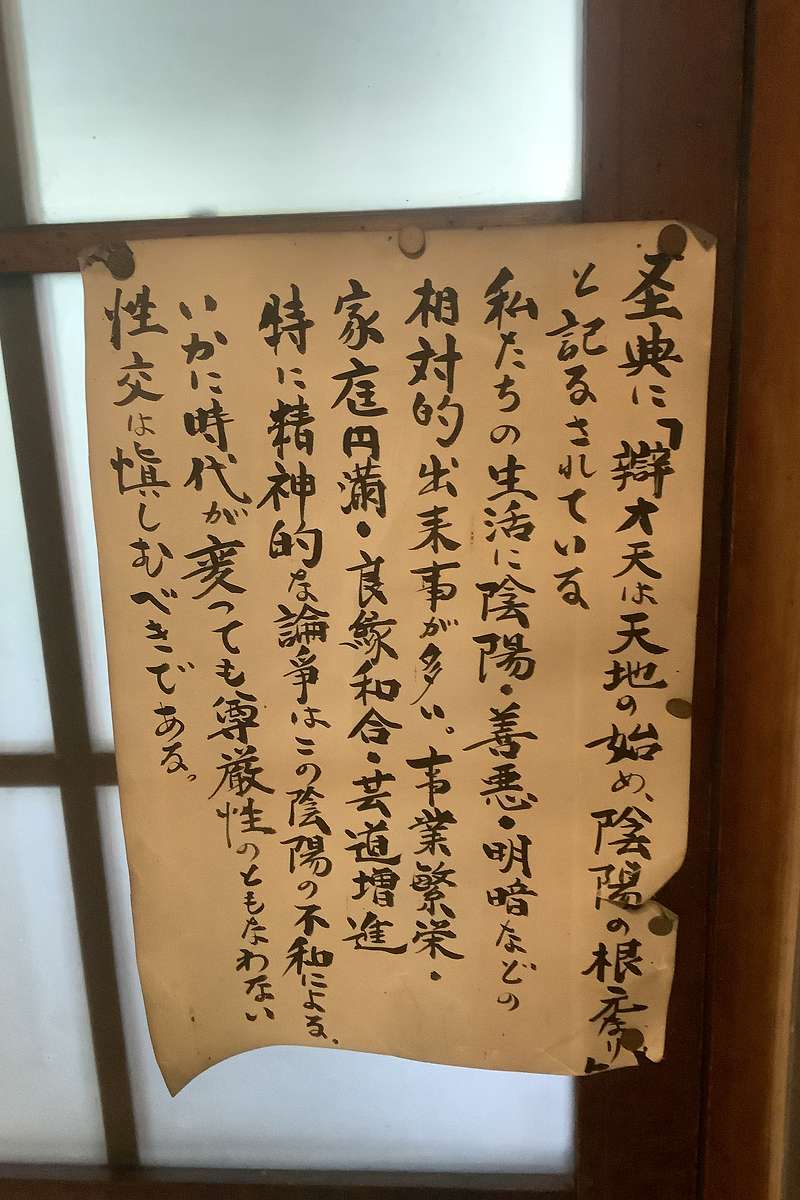 圣典に「辯才天は天地の始め、陰陽の根元なり」
と記るされている
私たちの生活に陰陽・善悪・明暗などの
相対的出来事が多い。事業繁栄・
家庭円満・良縁和合・芸道増進
特に精神的な論争はこの陰陽の不和による。
いかに時代が変っても尊厳性のともなわない
性交は慎しむべきである。